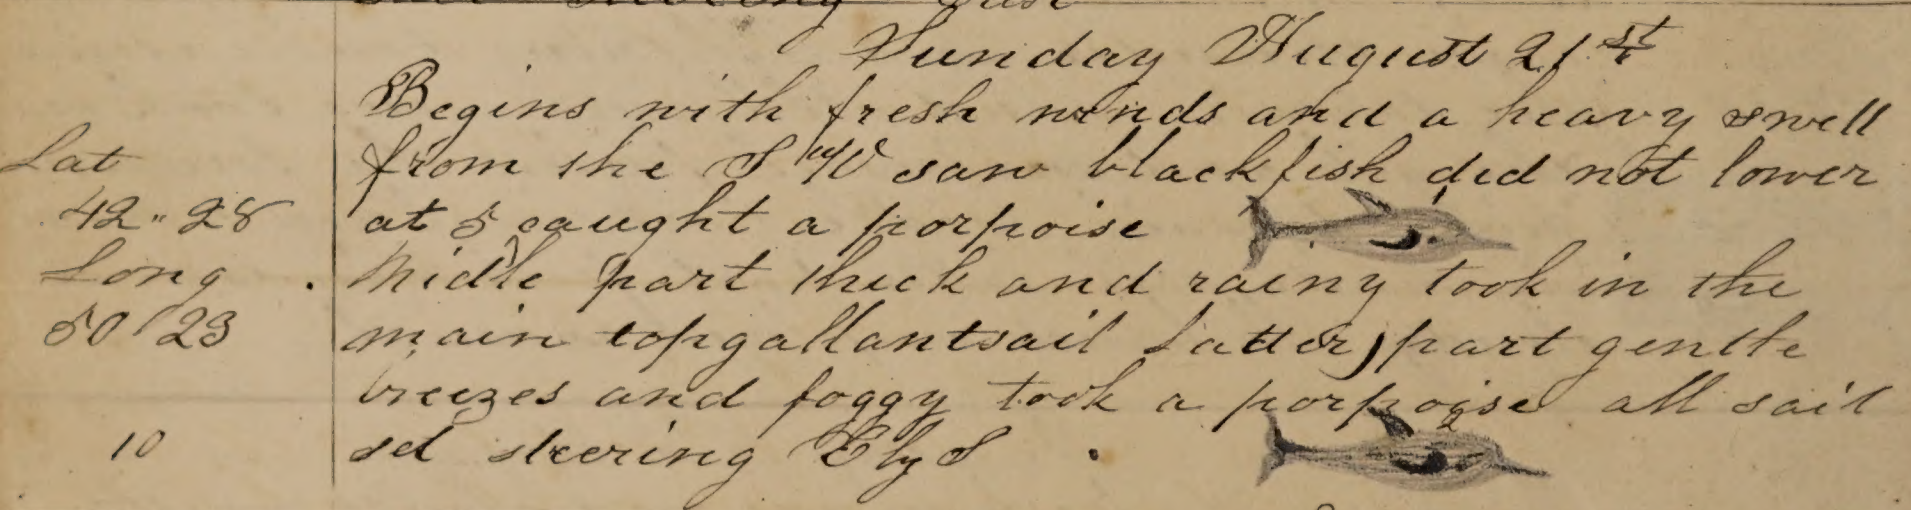 East
Sunday August 21st
Begins with fresh winds and a heavy swell
from the S W saw blackfish did not lower
at 5 caught a porpoise
Midle part thick and rainy took in the
main topgallantsail Latter part gentle
breezes and foggy took a porpoise all sail
set steering E by S
Lat
42 " 28
Long
50 ' 23
10